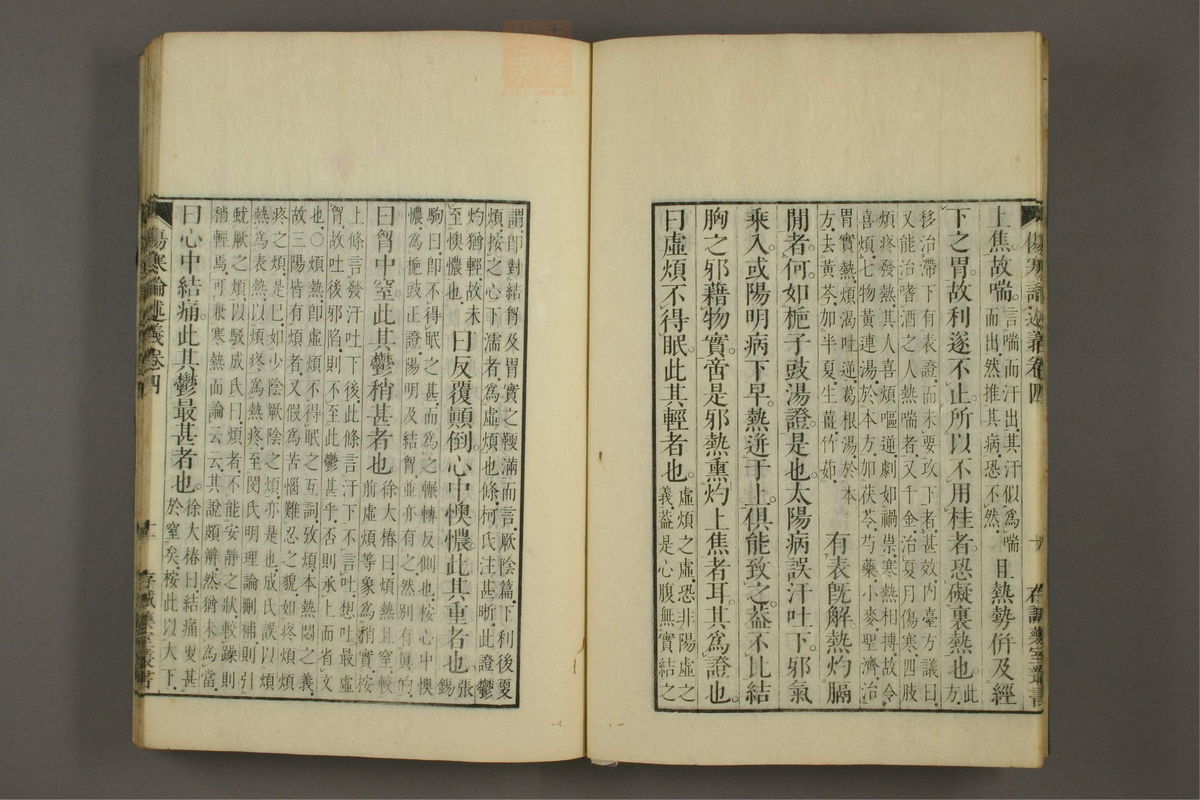 傷寒論述義卷四 十 存誠藥室叢書
上焦。故喘。言喘而汗出。其汗似為喘
而出。然推其病。恐不然。
且熱勢併及經
下之胃。故利遂不止。所以不用桂者。恐礙裏熱也。此
方。
移治滯下有表證而未要攻下者。甚效。內臺方議曰。
又能治嗜酒之人熱喘者。又千金。治夏月傷寒。四肢
煩疼發熱。其人喜煩。嘔逆劇如禍祟。寒熱相搏。故令
喜煩。七物黃連湯。於本方。加茯苓。芍藥。小麥。聖濟。治
胃實熱煩渴吐逆葛根湯。於本
方。去黃芩。加半夏。生薑。竹茹。
有表既解熱灼膈
閒者。何。如梔子豉湯證。是也。太陽病。誤汗吐下。邪氣
乘入。或陽明病下早。熱迸于上。俱能致之。蓋不比結
胸之邪藉物實。啻是邪熱熏灼上焦者耳。其為證也。
曰虛煩不得眠。此其輕者也。虛煩之虛。恐非陽虛之
義。蓋是心腹無實結之
謂。即對結胷及胃實之鞕滿而言。厥陰篇。下利後更
煩。按之心下濡者。為虛煩也條。柯氏注甚晰。此證鬱
灼猶輕。故未
至懊憹也。
曰反覆顛倒。心中懊憹。此其重者也。張
錫
駒曰。即不得眠之甚。而為之輾轉反側也。按心中懊
憹。為梔豉正證。陽明及結胷。並亦有之。然別有真的
曰胷中窒。此其鬱稍甚者也。徐大椿曰。煩熱且窒。較
前虛煩等象為稍實。按
上條言發汗吐下後。此條言汗下。不言吐。想吐最虛
胷。故吐後邪陷。則不至此鬱甚乎。否則承上而省文
也。○煩熱。即虛煩不得眠之互詞。攷煩。本熱悶之義。
故三陽皆有煩者。又假為苦惱難忍之貌。如疼煩。煩
疼之煩。是已。如少陰厥陰之煩。亦是也。成氏誤以煩
熱為表熱。以煩疼為熱疼。至閔氏明理論刪補。則引
蚘厥之煩。以駁成氏曰。煩者。不能安靜之狀。較躁則
稍輕焉。可兼寒熱而論云云。其說頗辨。然猶未為當。
曰心中結痛。此其鬱最甚者也。徐大椿曰。結痛更甚
於窒矣。按此以大下。
傷寒論述義卷四 十一 存誠藥室叢書